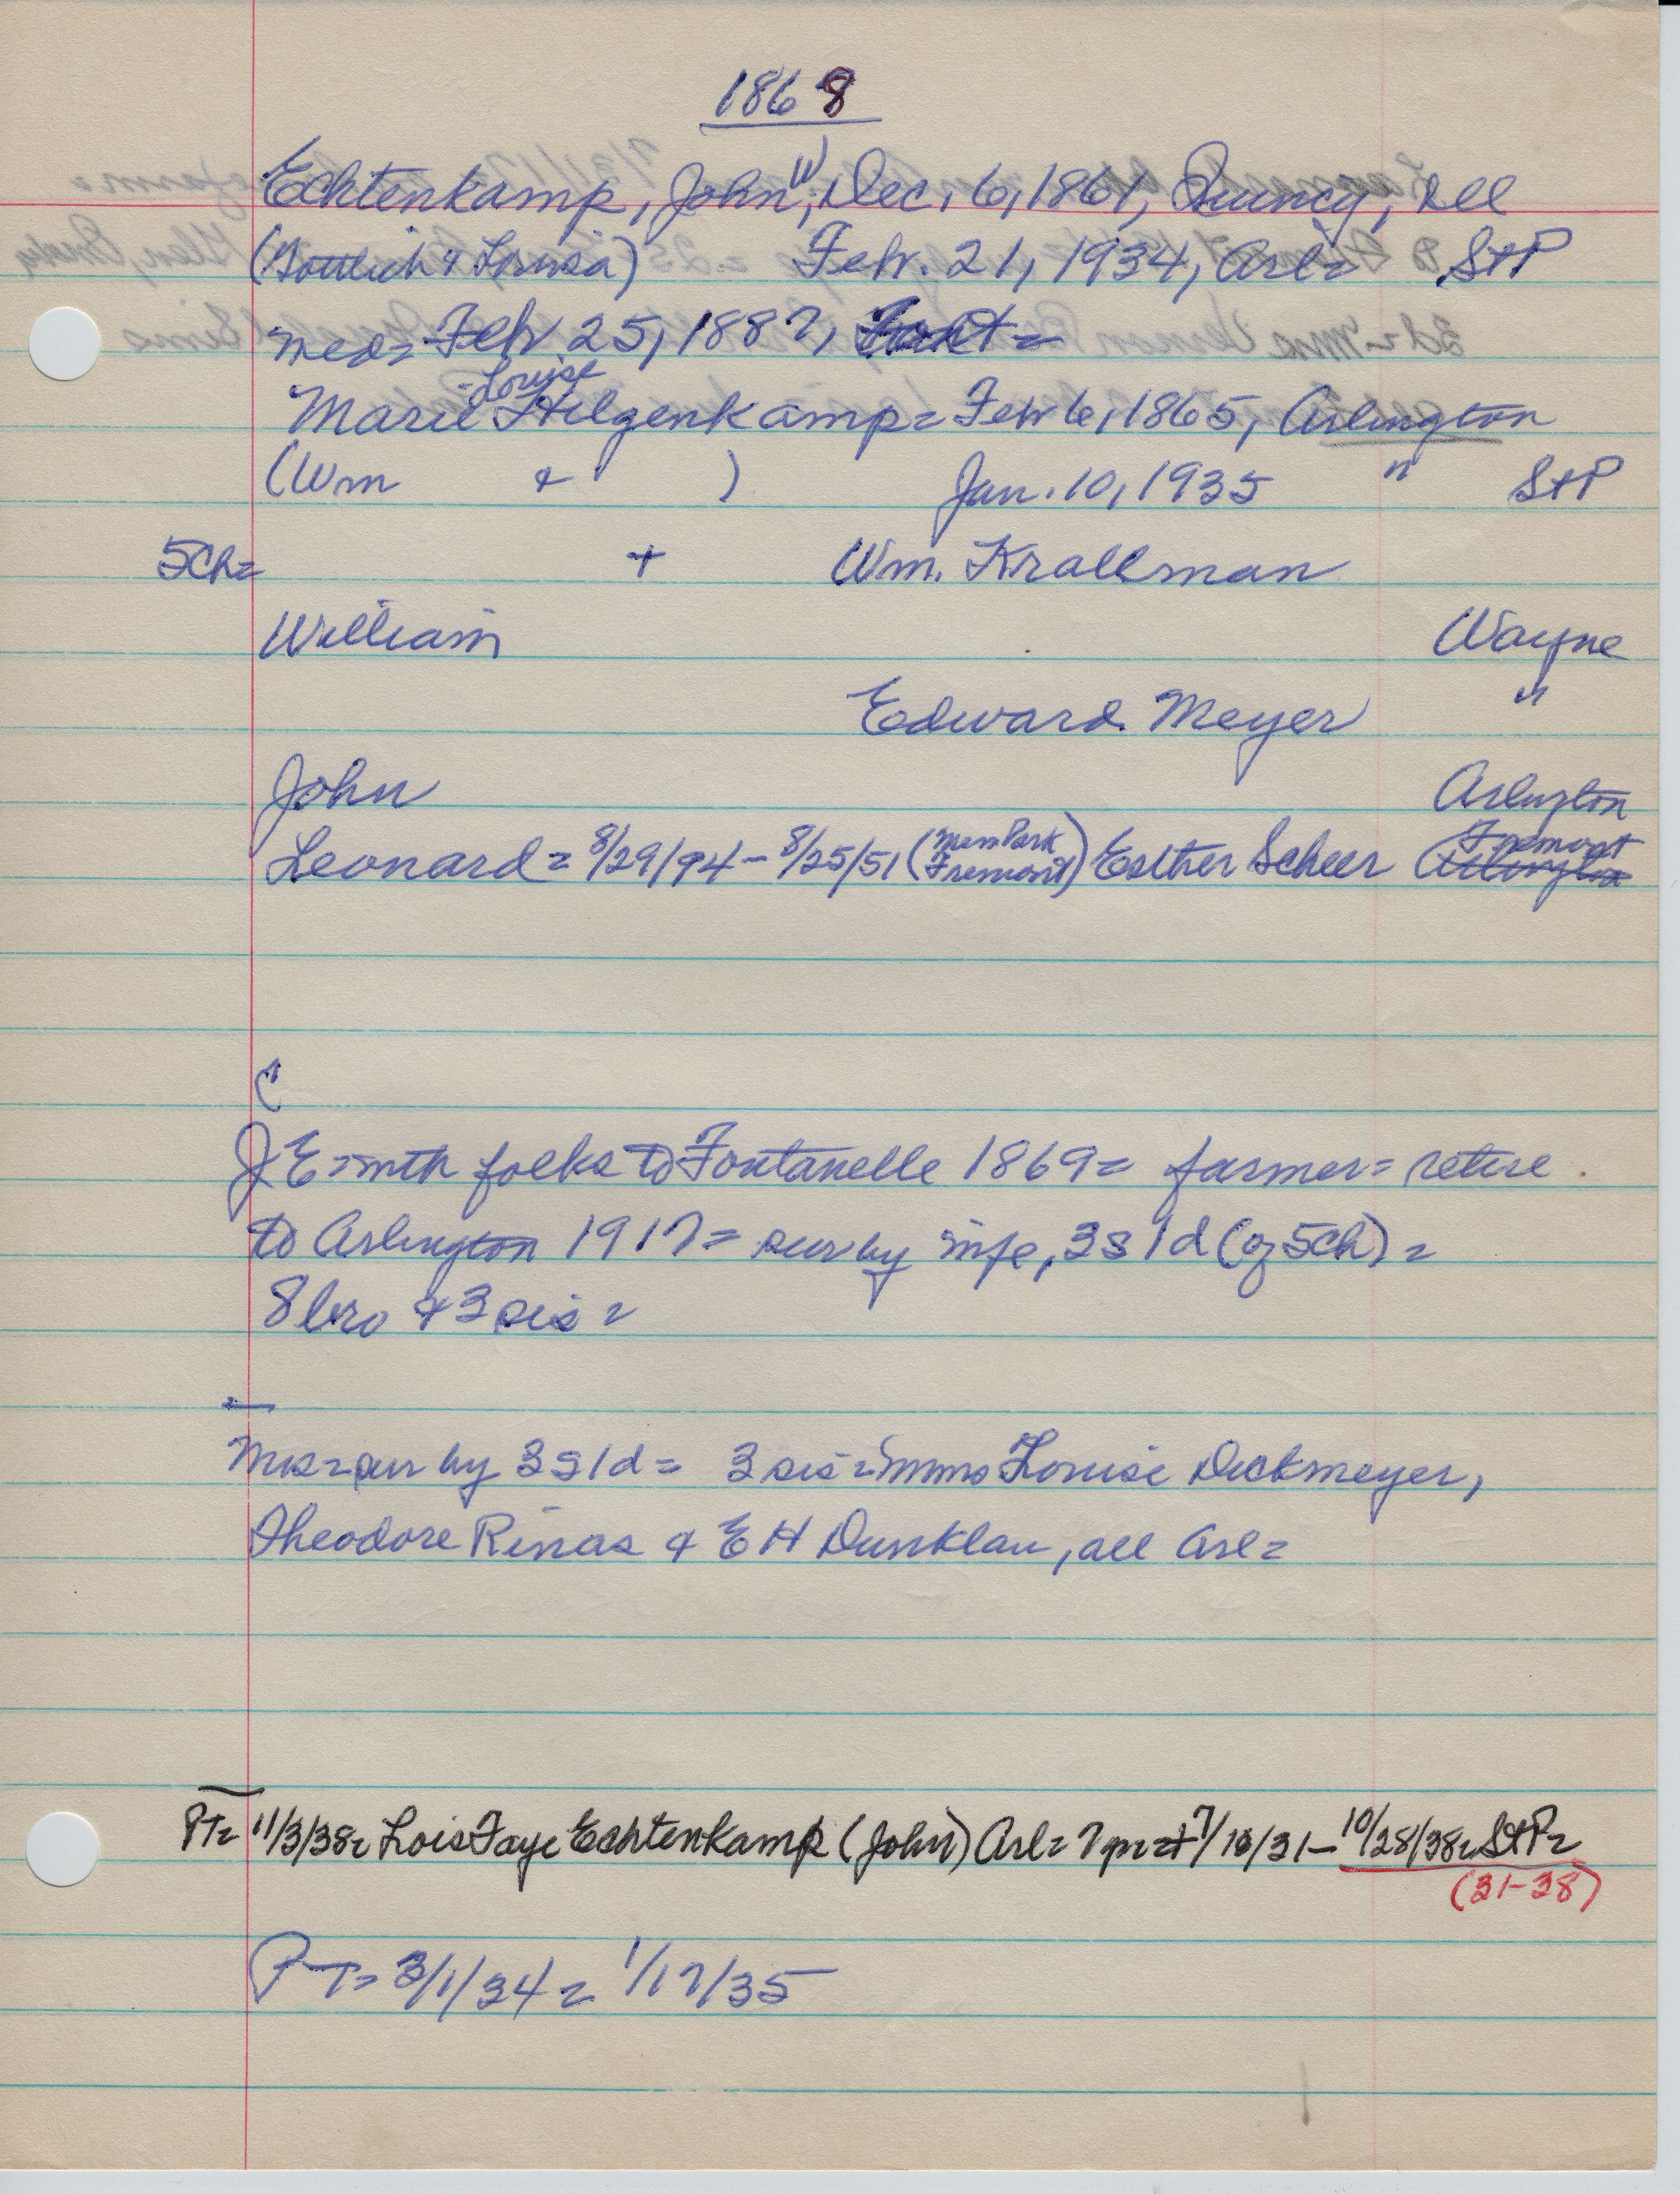 1868
Echtenkamp, John W, Dec. 6, 1861, Quincy, Ill
(Gottlieb & Louisa) Feb. 21, 1934, Arl= StP
med= Feb 25, 1887, Font=
Louise
Marie Hilgenkamp= Feb 6, 1865, Arlington
(Wm & ) Jan. 10, 1935 " StP
5Ch= + Wm. Krallman
William Wayne
Edward Meyer "
John Arlington
Leonard= 8/29/94 - 8/25/51 (Mem Park Fremont) Esther Scheer Fremont
C
JE=with folks to Fontanelle 1869= farmer= retire
to Arlington 1917= sur by wife, 3s 1d (of 5ch) =
8 bro & 3 sis =
Mrs= sur by 3s 1d= 3 sis= Mmes Louise Dickmeyer,
Theodore Rinas & E H Dunklau, all Arl=
PT= 11/3/38= Lois Faye Echtenkamp (John) Arl= 7 yr= + 7/10/31 - 10/28/38= StP=
(31-38)
PT= 3/1/34= 1/17/35